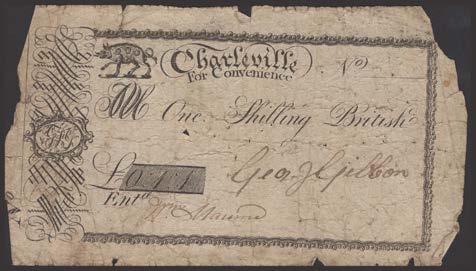 Charleville
For Convenience
No
One Shilling British
£0,,1,,1
Geo J Gibbon
Entd